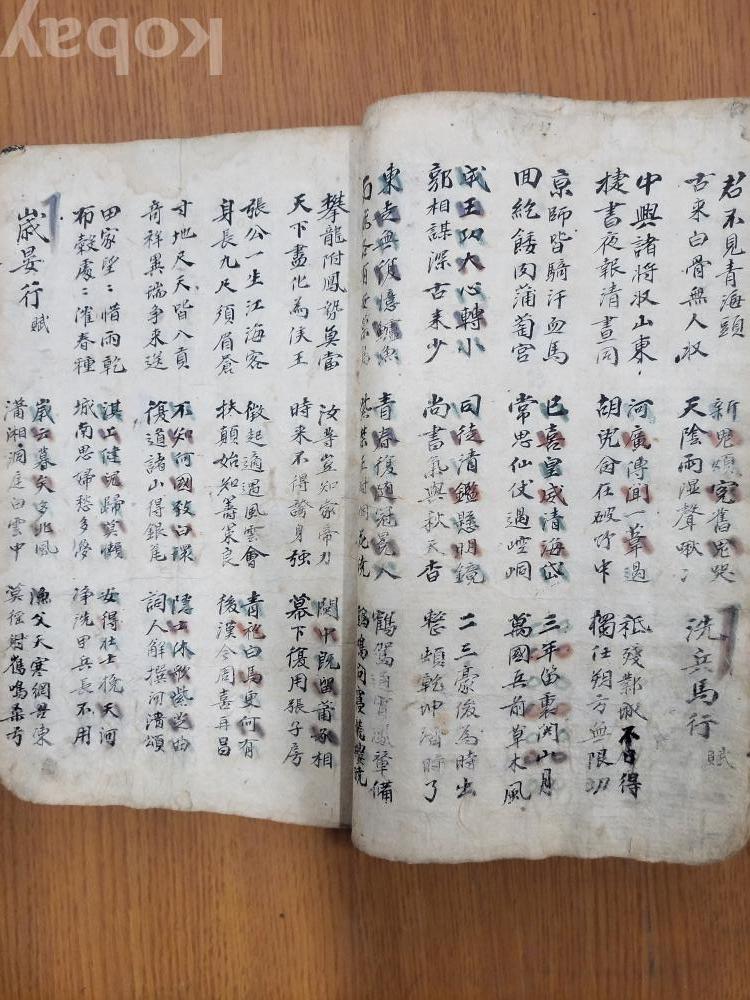 Kobay
君不見青海頭
古来白骨無人収
新鬼煩冤舊鬼哭
天陰雨湿聲啾々
洗兵馬行 賦
中興諸将収山東
捷書夜報清晝同
河廣傳聞一葦過
胡児命在破竹中
祗殘鄴城不日得
獨任朔方無限功
京師皆騎汗血馬
回紇餧肉蒲萄宮
已喜皇威清海岱
常思仙仗過崆峒
三年笛裏関山月
萬國兵前草木風
成王功大心轉小
郭相謀深古来少
司徒清鑑懸明鏡
尚書氣與秋天杳
二三豪俊為時出
整頓乾坤濟時了
東走無復憶鱸魚
青春復隨冠冕入
鶴駕通宵鳳輦備
攀龍附鳳勢莫當
天下盡化為侯王
汝等豈知蒙帝力
時来不得誇身強
関中既留蕭丞相
幕下復用張子房
張公一生江海客
身長九尺須眉蒼
徴起適遇風雲會
扶顛始知籌策良
青袍白馬更何有
後漢今周喜再昌
寸地尺天皆入貢
奇祥異瑞争来送
不知何國致白環
復道諸山得銀瓮
隠士休歌紫芝曲
詞人解撰河清頌
田家望〻惜雨乾
布穀處〻催春種
淇上健児歸莫懶
城南思婦愁多夢
安得壮士挽天河
淨洗甲兵長不用
歲晏行 賦
歲云暮矣多北風
瀟湘洞庭白雲中
漁父天寒網罟凍
莫徭射鴈鳴桑弓